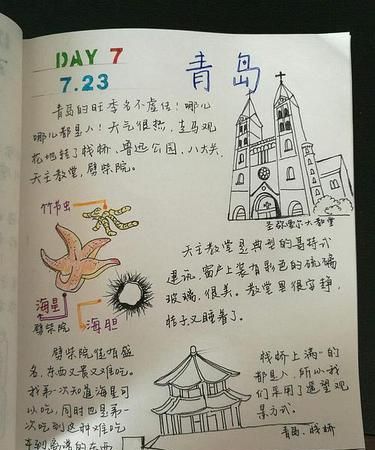 DAY 7
7.23
青岛
青岛的旺季名不虚传！哪儿
哪儿都是人！天气很热，走马观
花地转了栈桥、鲁迅公园、八大关、
天主教堂、劈柴院。
竹节虫
海星
海胆
劈柴院
圣弥爱尔大教堂
天主教堂是典型的哥特式
建筑，窗户上装有彩色的琉璃
玻璃，很美。教堂里很安静，
桔子又睡着了。
劈柴院徒有盛
名，东西又贵又难吃。
我第一次知道海星可
以吃，同时也是第一
次吃到这种难吃
的东西
栈桥上满满的
都是人，所以我
们采用了遥望观
景方式。
青岛·栈桥